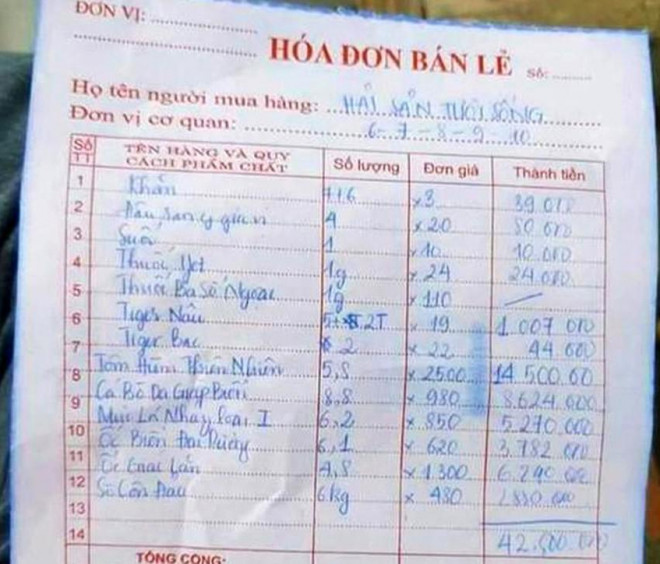 ĐƠN VỊ: ....................
HÓA ĐƠN BÁN LẺ Số: ........
Họ tên người mua hàng: HẢI SẢN TƯƠI SỐNG
Đơn vị cơ quan: 6-7-8-9-10
Số TT TÊN HÀNG VÀ QUY CÁCH PHẨM CHẤT Số lượng Đơn giá Thành tiền
1 Khăn 7+6 x3 39.000
2 4 x20 80.000
3 Suối 1 x10 10.000
4 Thuốc Jet 1g x24 24.000
5 Thuốc Ba Số Ngoại 1g x110
6 Tiger Nâu x 19 1.007.000
7 Tiger Bạc 2 x 22 44.000
8 Tôm Hùm Thiên Nhiên 5,8 x 2500 14.500.00
9 Cá Bò Da Giáp Biển 8,8 x 980 8.624.000
Mực Lá Nháy Loại I 6,2 x 850 5.270.000
10 Ốc Biển Đại Dương 6,1 x 620 3.782.000
11 Ốc 4,8 x 1300 6.240.000
12 Sò Côn Đảo 6kg x 480 2.880.000
13
14 42.500.000
TỔNG CỘNG: